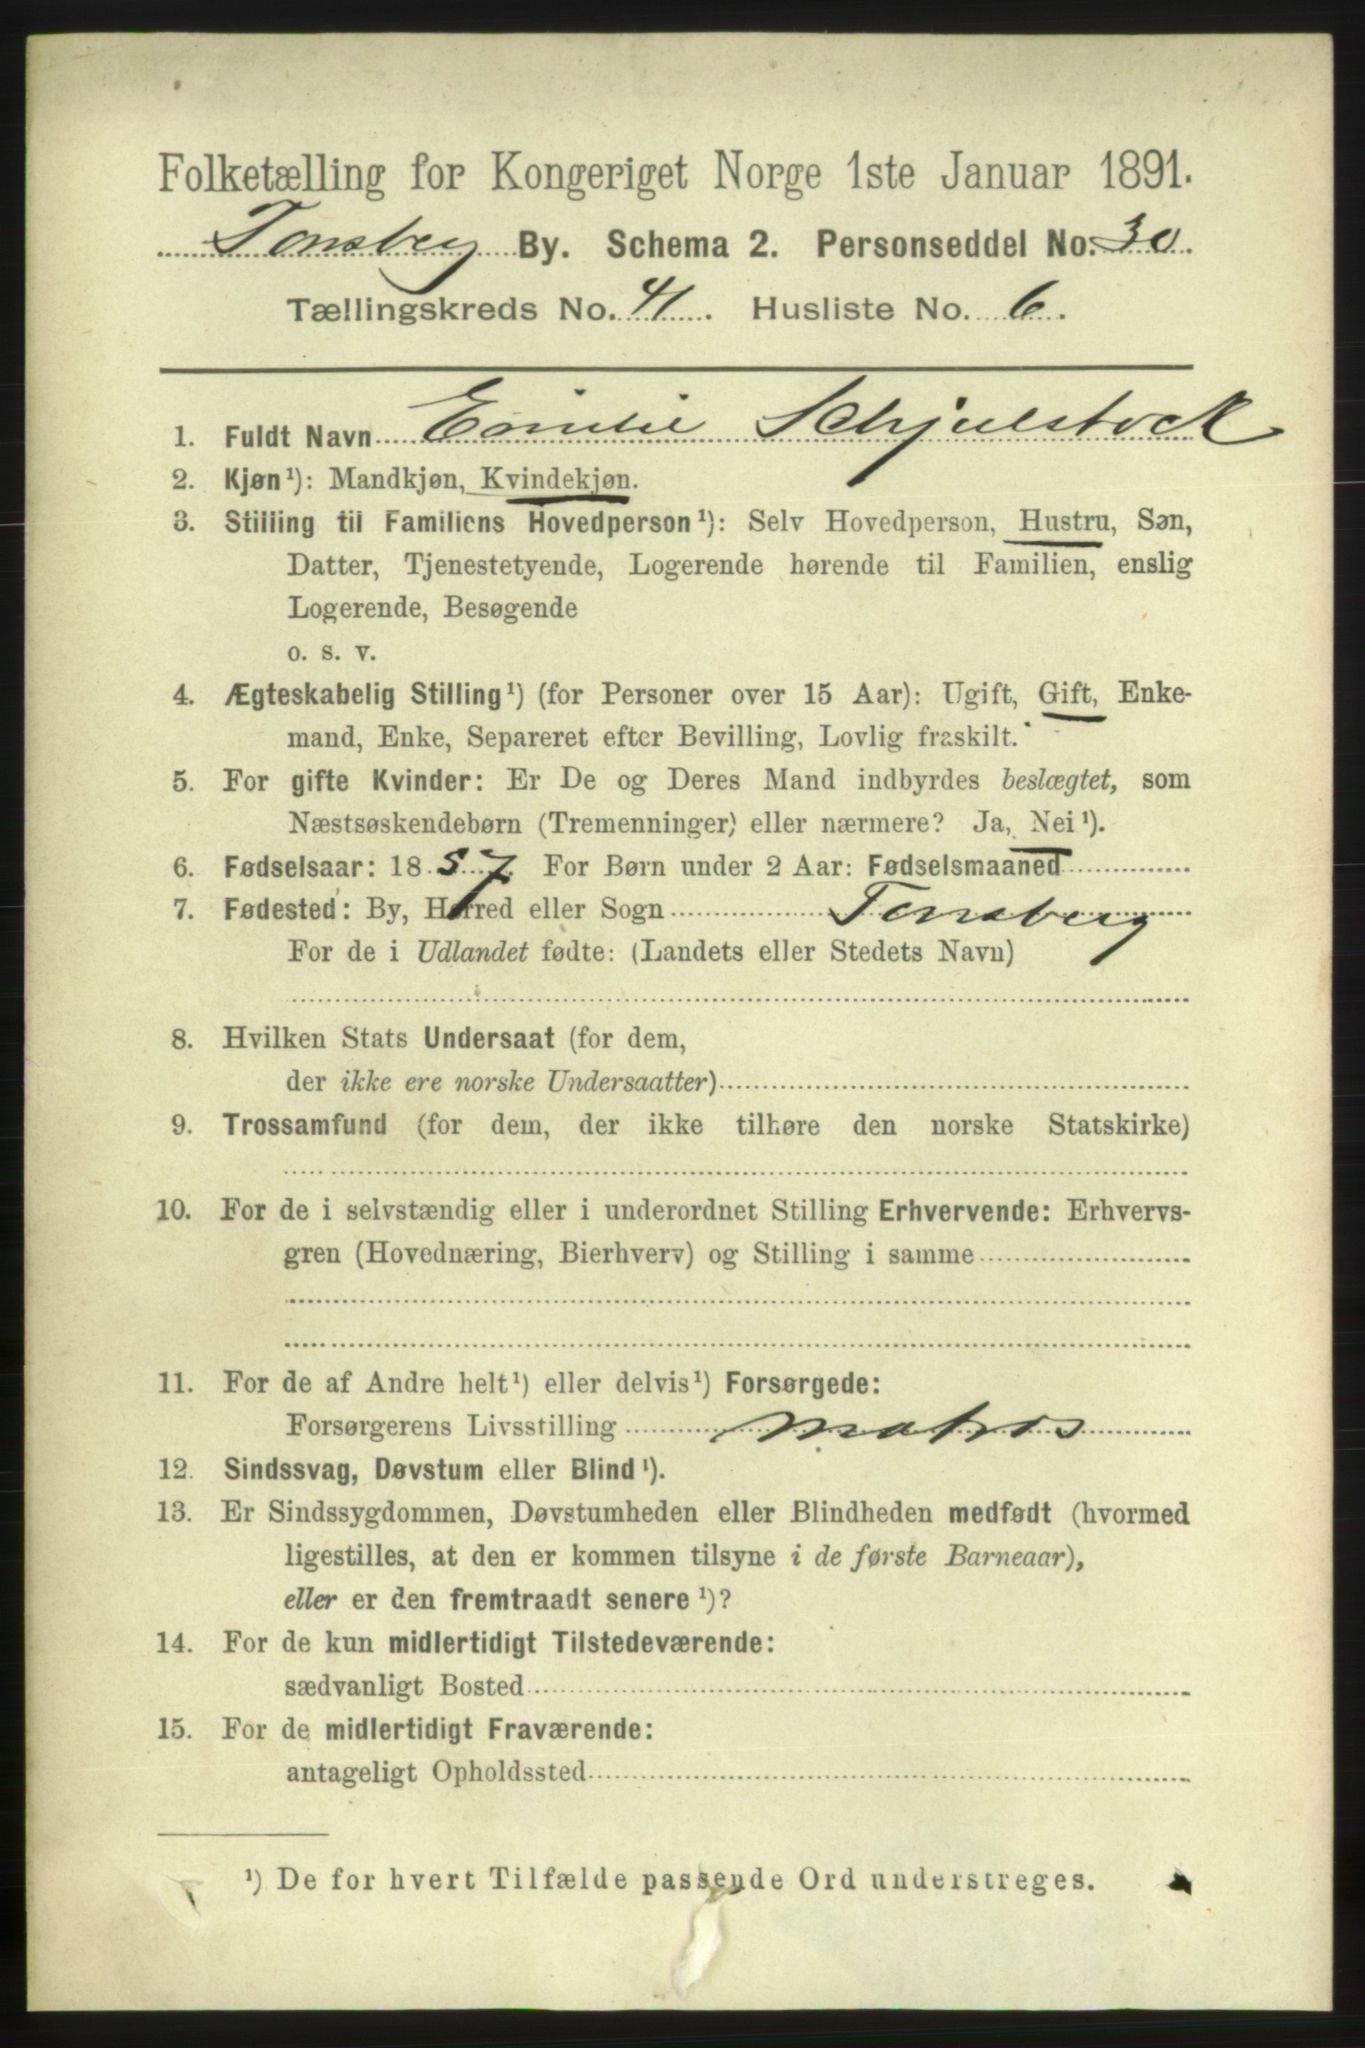 Folketælling for Kongeriget Norge 1ste Januar 1891.
Tonsberg By. Schema 2. Personseddel No. 30
Tællingskreds No. 41. Husliste No. 6.
1. Fuldt Navn Emilie Schjulstock
2. Kjøn¹): Mandkjøn, Kvindekjøn.
3. Stilling til Familiens Hovedperson¹): Selv Hovedperson, Hustru, Søn,
Datter, Tjenestetyende, Logerende hørende til Familien, enslig
Logerende, Besøgende
o. s. v.
4. Ægteskabelig Stilling¹) (for Personer over 15 Aar): Ugift, Gift, Enke-
mand, Enke, Separeret efter Bevilling, Lovlig fraskilt.
5. For gifte Kvinder: Er De og Deres Mand indbyrdes beslægtet, som
Næstsøskendebørn (Tremenninger) eller nærmere? Ja, Nei¹).
6. Fødselsaar: 1857. For Børn under 2 Aar: Fødselsmaaned
7. Fødested: By, Herred eller Sogn Tonsberg
For de i Udlandet fødte: (Landets eller Stedets Navn)
8. Hvilken Stats Undersaat (for dem,
der ikke ere norske Undersaatter)
9. Trossamfund (for dem, der ikke tilhøre den norske Statskirke)
10. For de i selvstændig eller i underordnet Stilling Erhvervende: Erhvervs-
gren (Hovednæring, Bierhverv) og Stilling i samme
11. For de af Andre helt¹) eller delvis¹) Forsørgede:
Forsørgerens Livsstilling Matros
12. Sindssvag, Døvstum eller Blind¹).
13. Er Sindssygdommen, Døvstumheden eller Blindheden medfødt (hvormed
ligestilles, at den er kommen tilsyne i de første Barneaar),
eller er den fremtraadt senere¹)?
14. For de kun midlertidigt Tilstedeværende:
sædvanligt Bosted
15. For de midlertidigt Fraværende:
antageligt Opholdssted
¹) De for hvert Tilfælde passende Ord understreges.